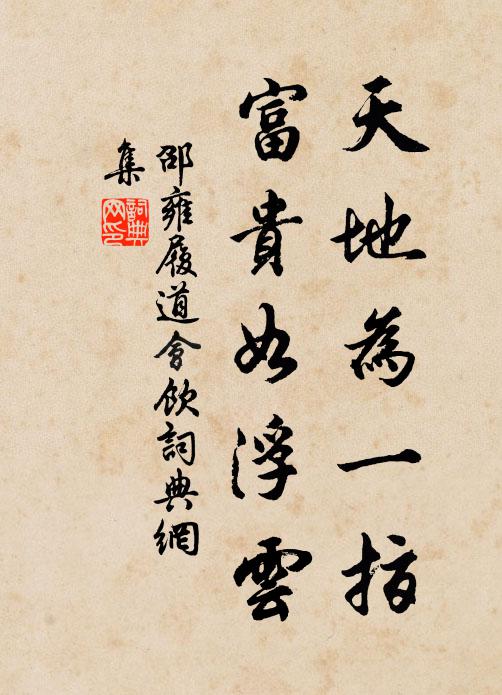 天地為一指
富貴如浮雲
邵雍履道會飲詞典網
集
詞典網印